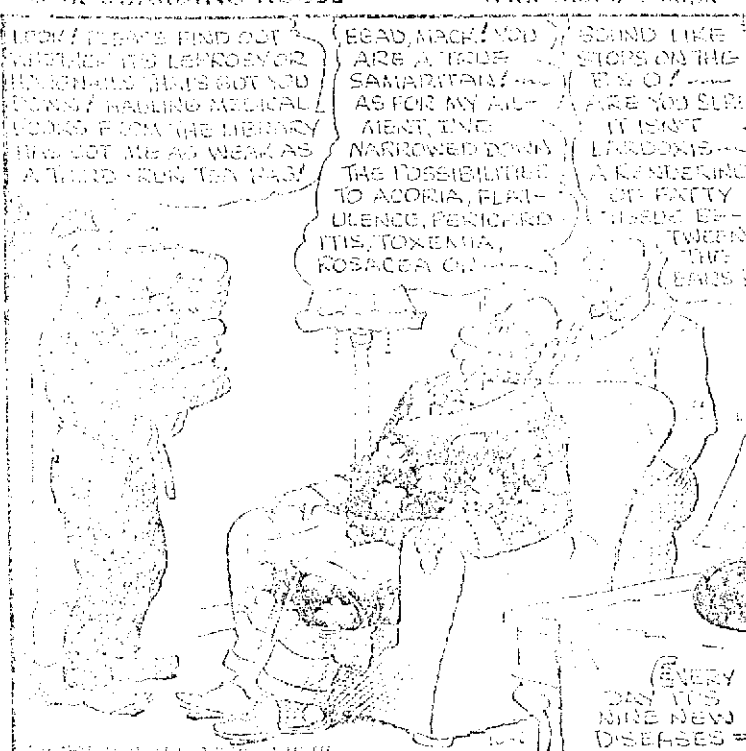 BOARDING HOUSE
LOOK! PLEASE FIND OUT
WHETHER IT'S LEPROSY OR
HANGNAILS THAT'S GOT YOU
DOWN! HAULING MEDICAL
BOOKS FROM THE LIBRARY
HAS GOT ME AS WEAK AS
A THIRD-RUN TEA BAG!
EGAD, MACK! YOU
ARE A TRUE
SAMARITAN!
AS FOR MY AIL-
MENT, I'VE
NARROWED DOWN
THE POSSIBILITIES
TO ACORIA, FLAT-
ULENCE, PERICARD
ITIS, TOXEMIA,
ROSACEA OR
SOUND LIKE
STOPS ON THE
B & O!
ARE YOU SURE
IT ISN'T
LARDOSIS
A RENDERING
OF FATTY
BE-
TWEEN
THE
EARS
EVERY
DAY IT'S
NINE NEW
DISEASES =